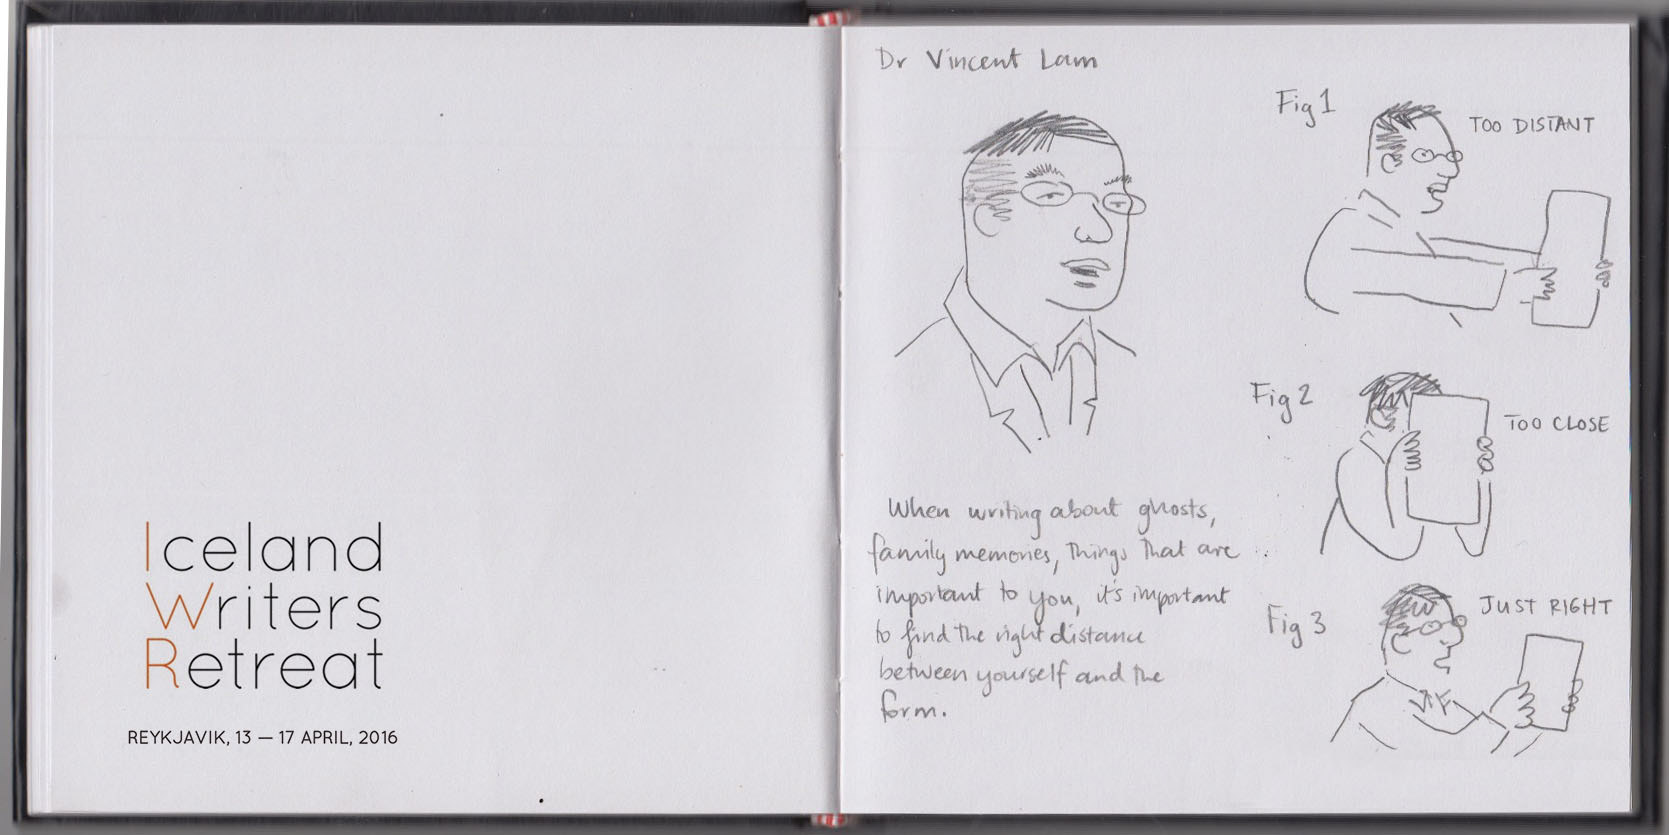 Iceland
Writers
Retreat
REYKJAVIK, 13 — 17 APRIL, 2016
Dr Vincent Lam
Fig 1
TOO DISTANT
Fig 2
TOO CLOSE
Fig 3
JUST RIGHT
When writing about ghosts,
family memories, things that are
important to you, it's important
to find the right distance
between yourself and the
form.